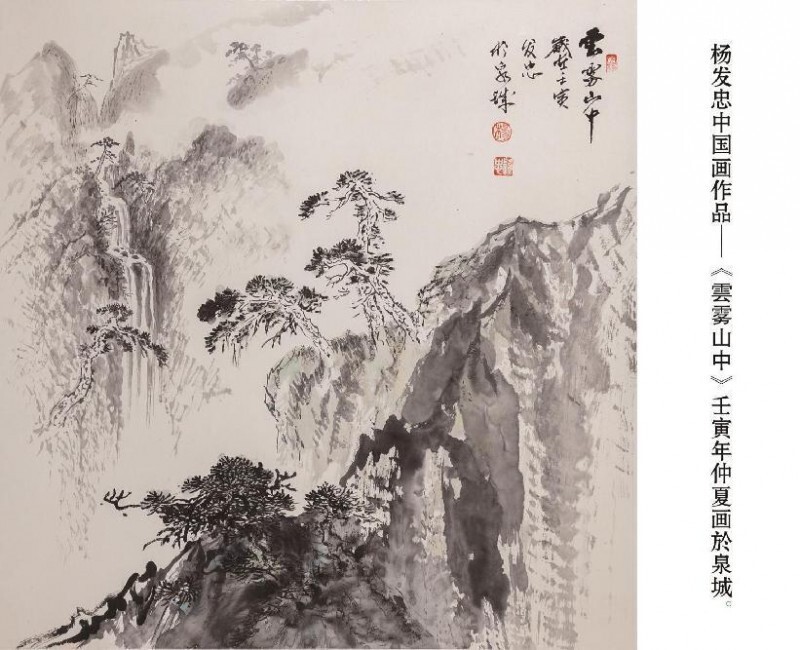 雲雾山中
歲在壬寅
发忠
於泉城
杨发忠中国画作品——《雲雾山中》壬寅年仲夏画於泉城。